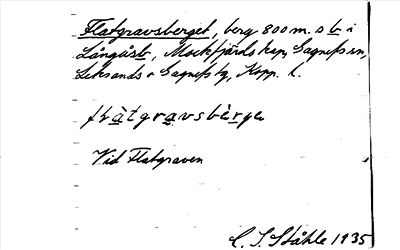 Flatgravsberget, berg 800 m. s b i
Långåsb, Mockfjärds kap, Gagnefs sn,
Leksands o Gagnefs tg, Kopp. l.
flàtgravsbèrge
Vid Flatgraven
C. I. Ståhle 1935